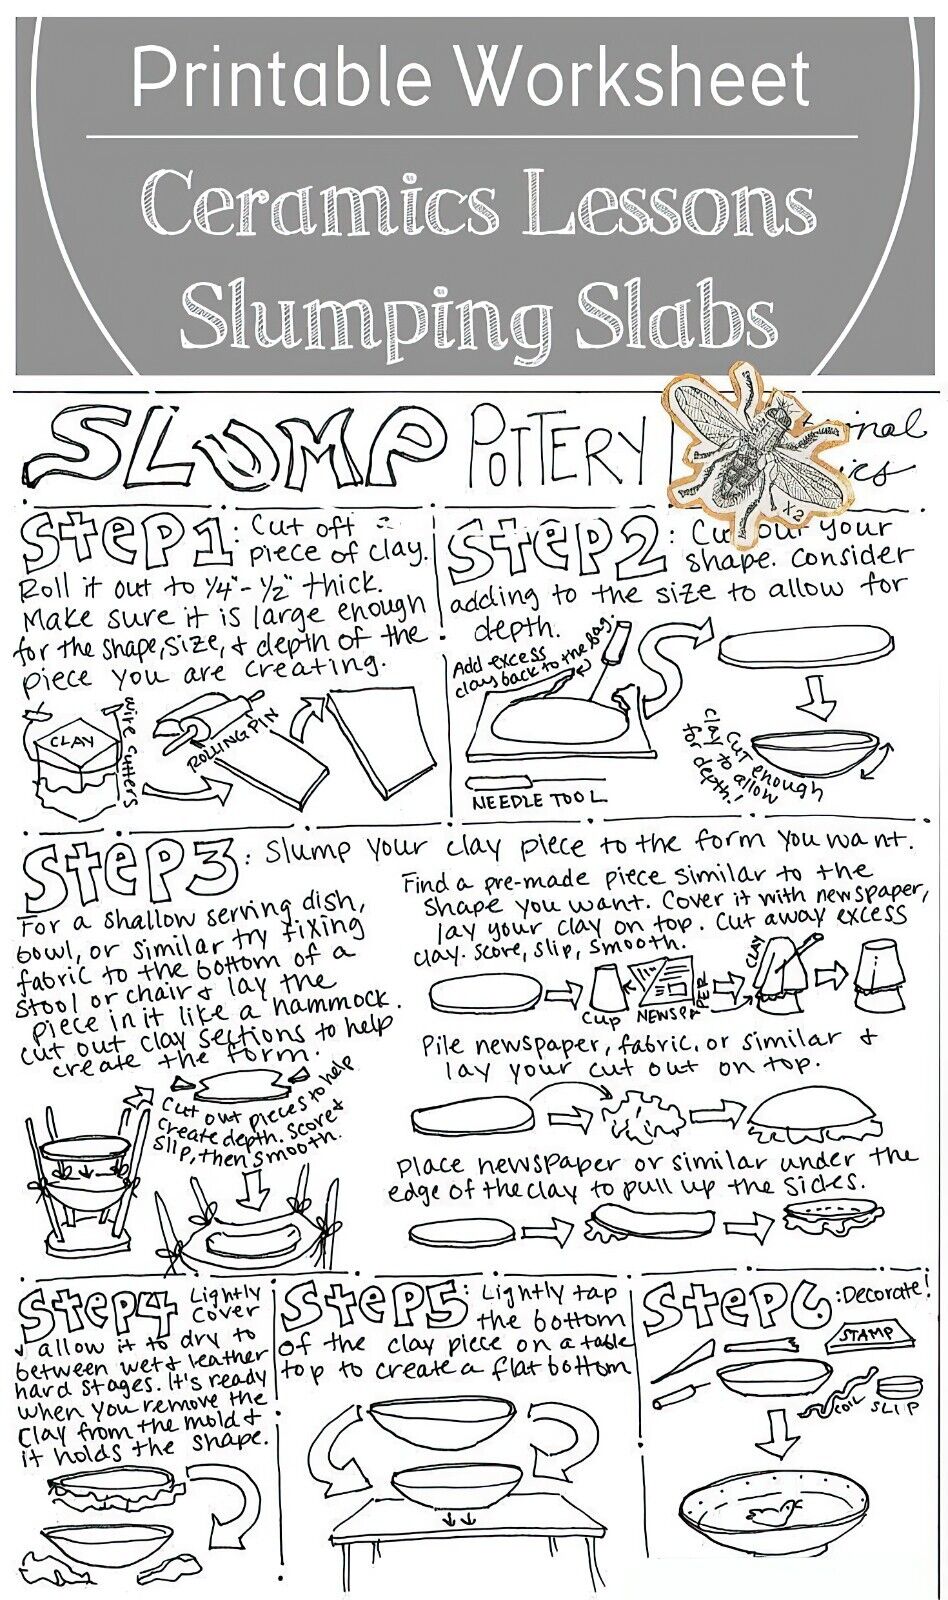 Printable Worksheet
Ceramics Lessons
Slumping Slabs
SLUMP POTTERY
x2
STEP 1: Cut off
piece of clay.
Roll it out to 1/4"-1/2" thick.
Make sure it is large enough
for the shape, size, & depth of the
piece you are creating.
CLAY
wire cutters
ROLLING PIN
STEP 2: Cut out your
shape. Consider
adding to the size to allow for
depth.
Add excess
clay back to the bag.
NEEDLE TOOL
Cut enough
clay to allow
for depth!
STEP 3: Slump your clay piece to the form you want.
For a shallow serving dish,
bowl, or similar try fixing
fabric to the bottom of a
stool or chair & lay the
piece in it like a hammock.
Cut out clay sections to help
create the form.
Cut out pieces to help
create depth. Score &
slip, then smooth.
Find a pre-made piece similar to the
shape you want. Cover it with newspaper,
lay your clay on top. Cut away excess
clay. Score, slip, smooth.
Cup
NEWSPAPER
CLAY
Pile newspaper, fabric, or similar &
lay your cut out on top.
Place newspaper or similar under the
edge of the clay to pull up the sides.
STEP 4 Lightly
cover
& allow it to dry to
between wet & leather
hard stages. It's ready
when you remove the
clay from the mold &
it holds the shape.
STEP 5: Lightly tap
the bottom
of the clay piece on a table
top to create a flat bottom
STEP 6: Decorate!
STAMP
COIL
SLIP